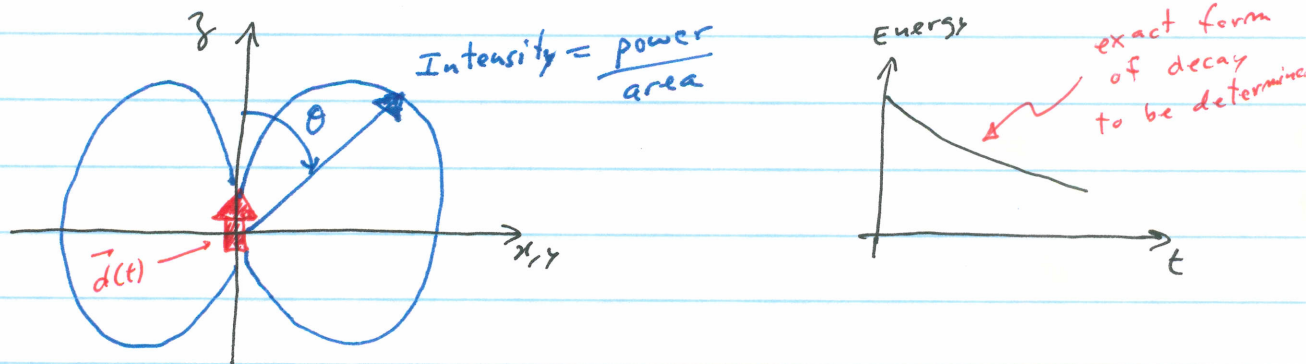 z
Intensity = power/area
θ
d⃗(t)
x,y
Energy
exact form
of decay
to be determined
t